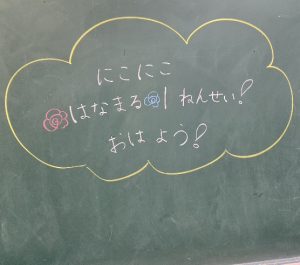 にこにこ
はなまる1ねんせい!
おはよう!